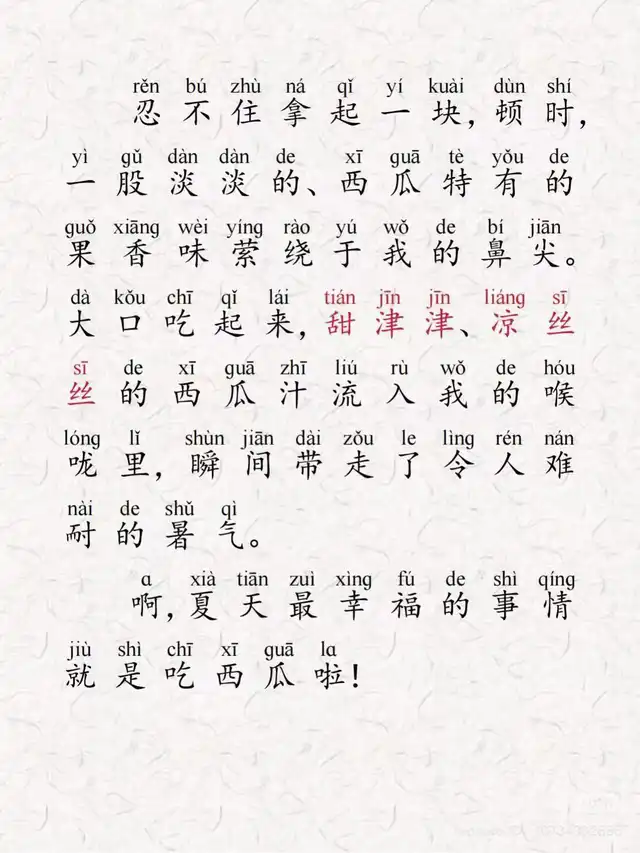 rěn bú zhù ná qǐ yí kuài dùn shí
忍不住拿起一块，顿时，
yì gǔ dàn dàn de xī guā tè yǒu de
一股淡淡的、西瓜特有的
guǒ xiāng wèi yíng rào yú wǒ de bí jiān
果香味萦绕于我的鼻尖。
dà kǒu chī qǐ lái tián jīn jīn liáng sī
大口吃起来，甜津津、凉丝
sī de xī guā zhī liú rù wǒ de hóu
丝的西瓜汁流入我的喉
lóng lǐ shùn jiān dài zǒu le lìng rén nán
咙里，瞬间带走了令人难
nài de shǔ qì
耐的暑气。
a xià tiān zuì xìng fú de shì qíng
啊，夏天最幸福的事情
jiù shì chī xī guā la
就是吃西瓜啦！